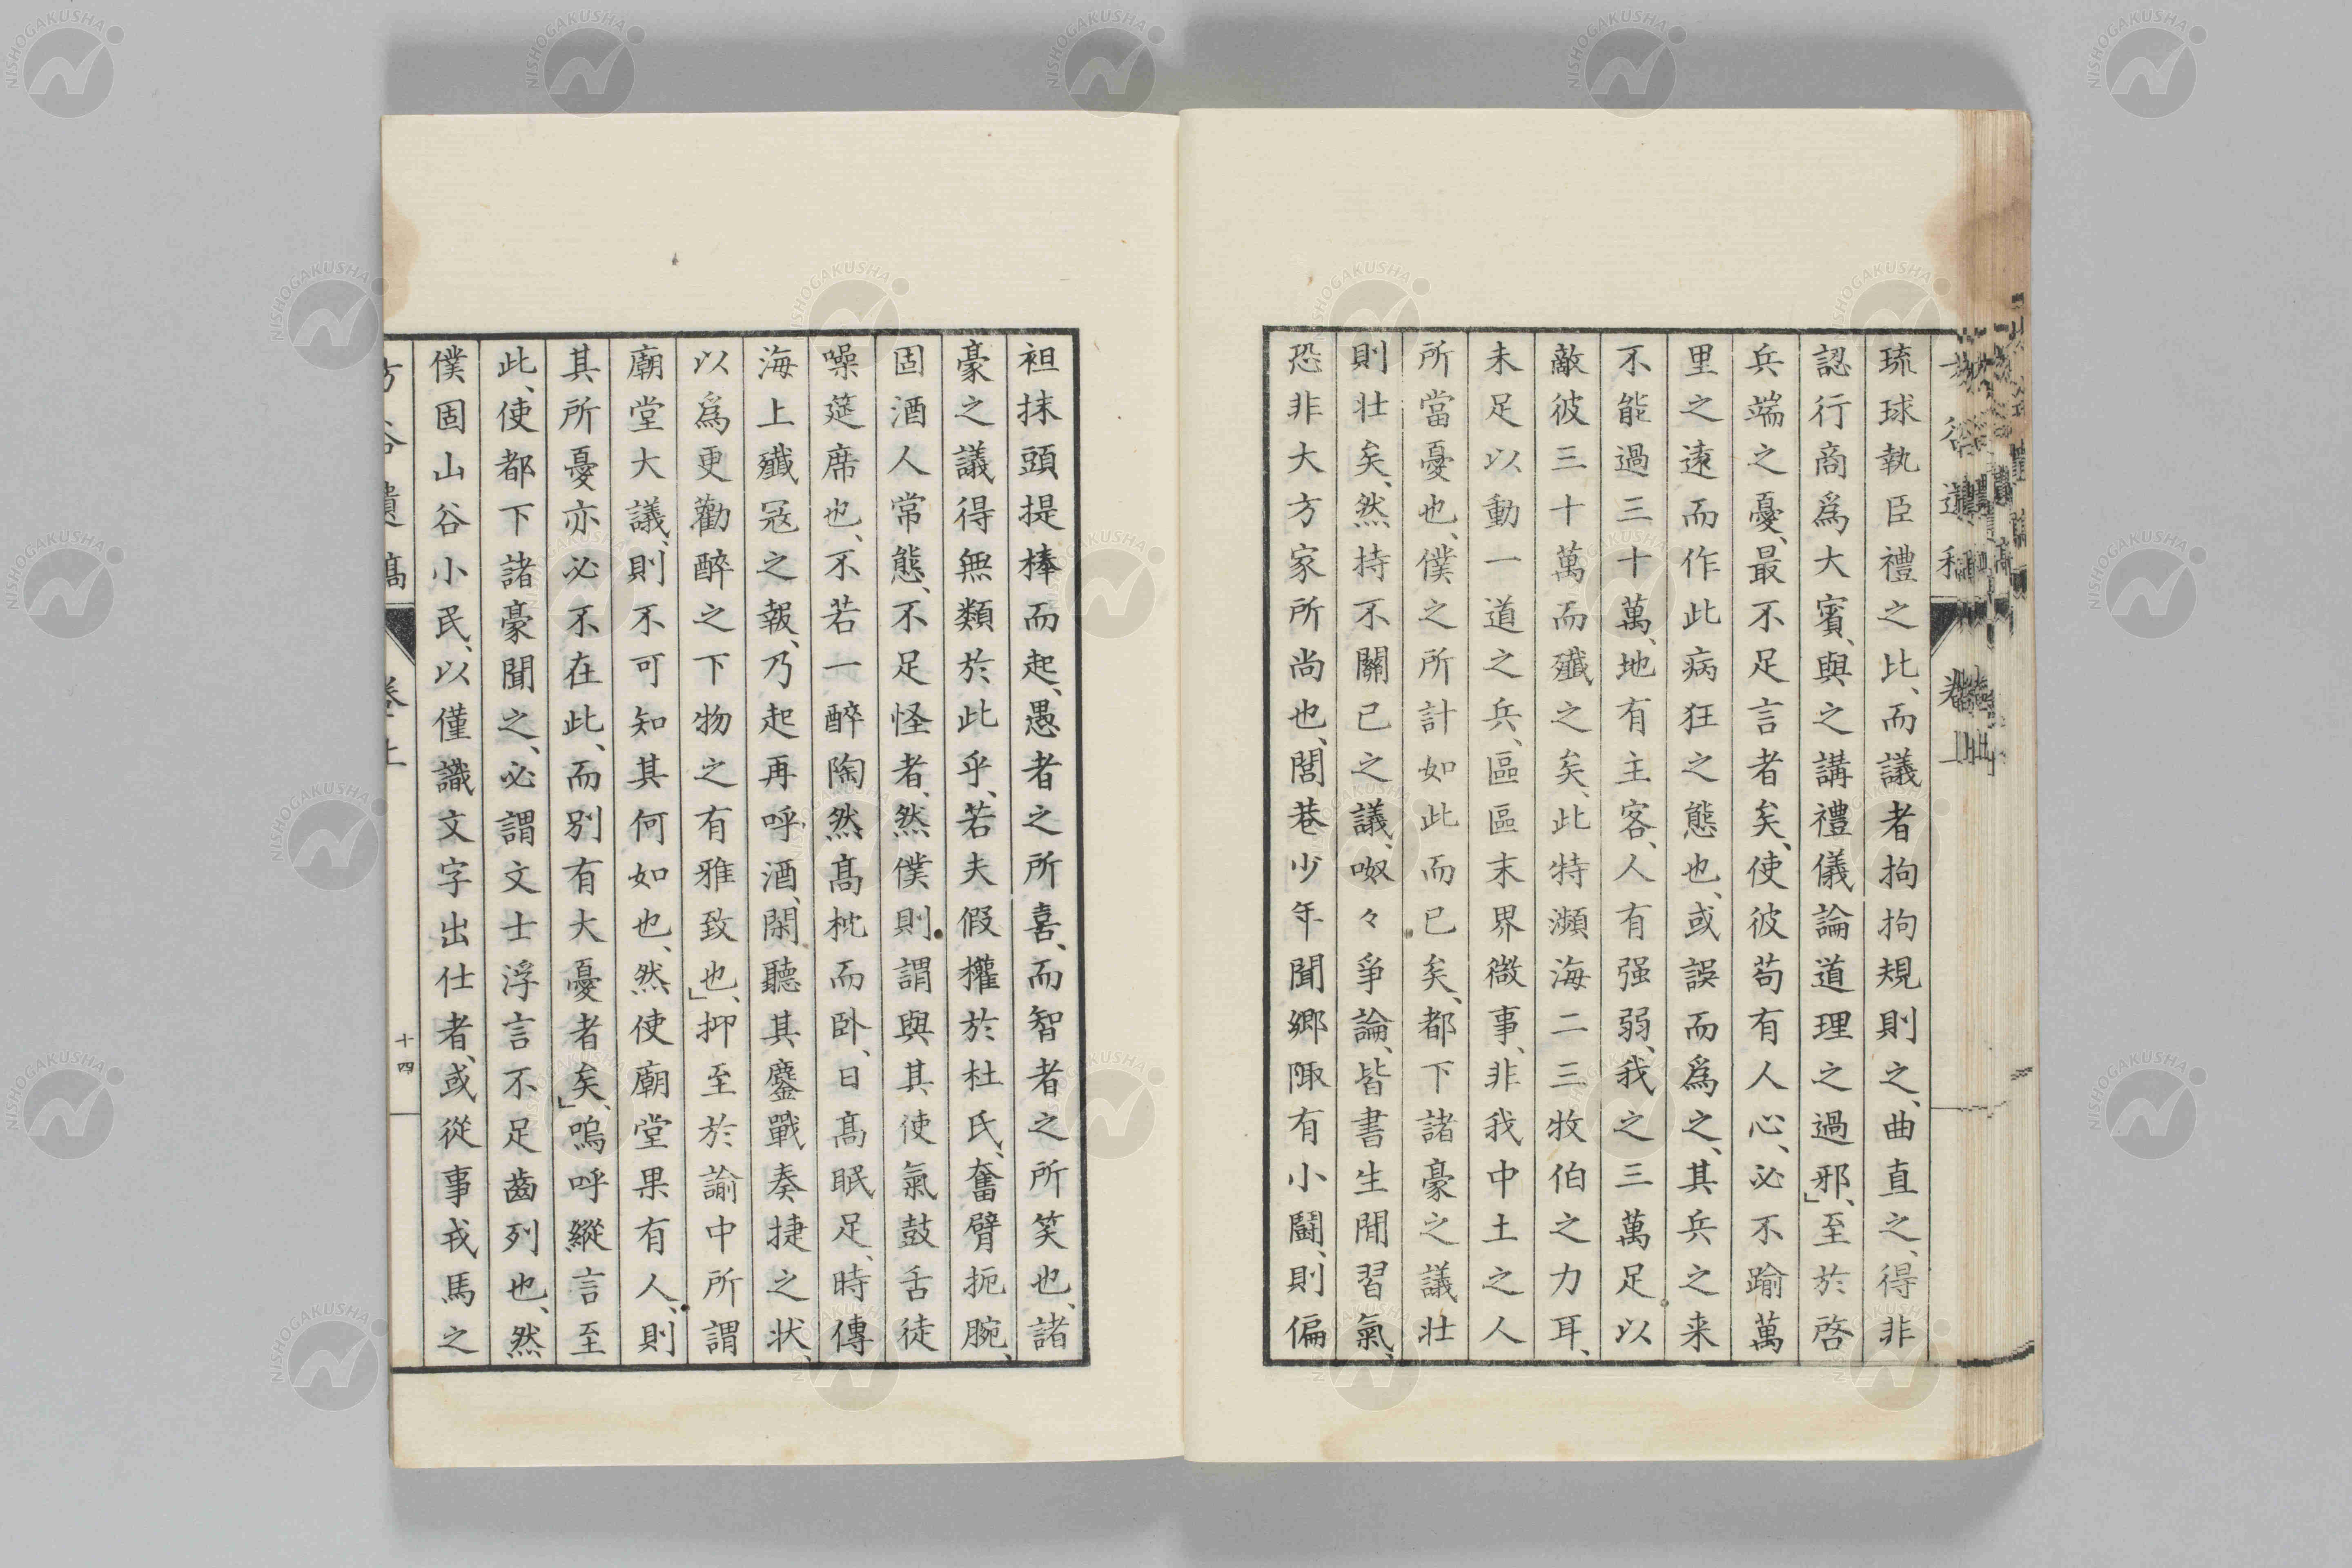 琉球執臣禮之比、而議者拘拘規則之、曲直之、得非
認行商爲大賓、與之講禮儀論道理之過邪、」至於啓
兵端之憂、最不足言者矣、使彼苟有人心、必不踰萬
里之遠而作此病狂之態也、或誤而爲之、其兵之来
不能過三十萬、地有主客、人有强弱、我之三萬足以
敵彼三十萬而殲之矣、此特瀕海二三牧伯之力耳、
未足以動一道之兵、區區末界微事、非我中土之人
所當憂也、僕之所計如此而已矣、都下諸豪之議壮
則壮矣、然持不關己之議、呶々爭論、皆書生閒習氣、
恐非大方家所尚也、閭巷少年聞鄉陬有小鬪、則偏
袒抹頭提棒而起、愚者之所喜、而智者之所笑也、諸
豪之議得無類於此乎、若夫假權於杜氏、奮臂扼腕、
固酒人常態、不足怪者、然僕則謂與其使氣鼓舌徒
噪筵席也、不若一醉陶然髙枕而卧、日髙眠足、時傳
海上殲冦之報、乃起再呼酒、閑聽其鏖戰奏捷之状、
以爲更勸醉之下物之有雅致也、」抑至於諭中所謂
廟堂大議、則不可知其何如也、然使廟堂果有人、則
其所憂亦必不在此、而別有大憂者矣、」嗚呼縱言至
此、使都下諸豪聞之、必謂文士浮言不足齒列也、然
僕固山谷小民、以僅識文字出仕者、或從事戎馬之
方谷遺髙 卷上 十四
NISHOGAKUSHA